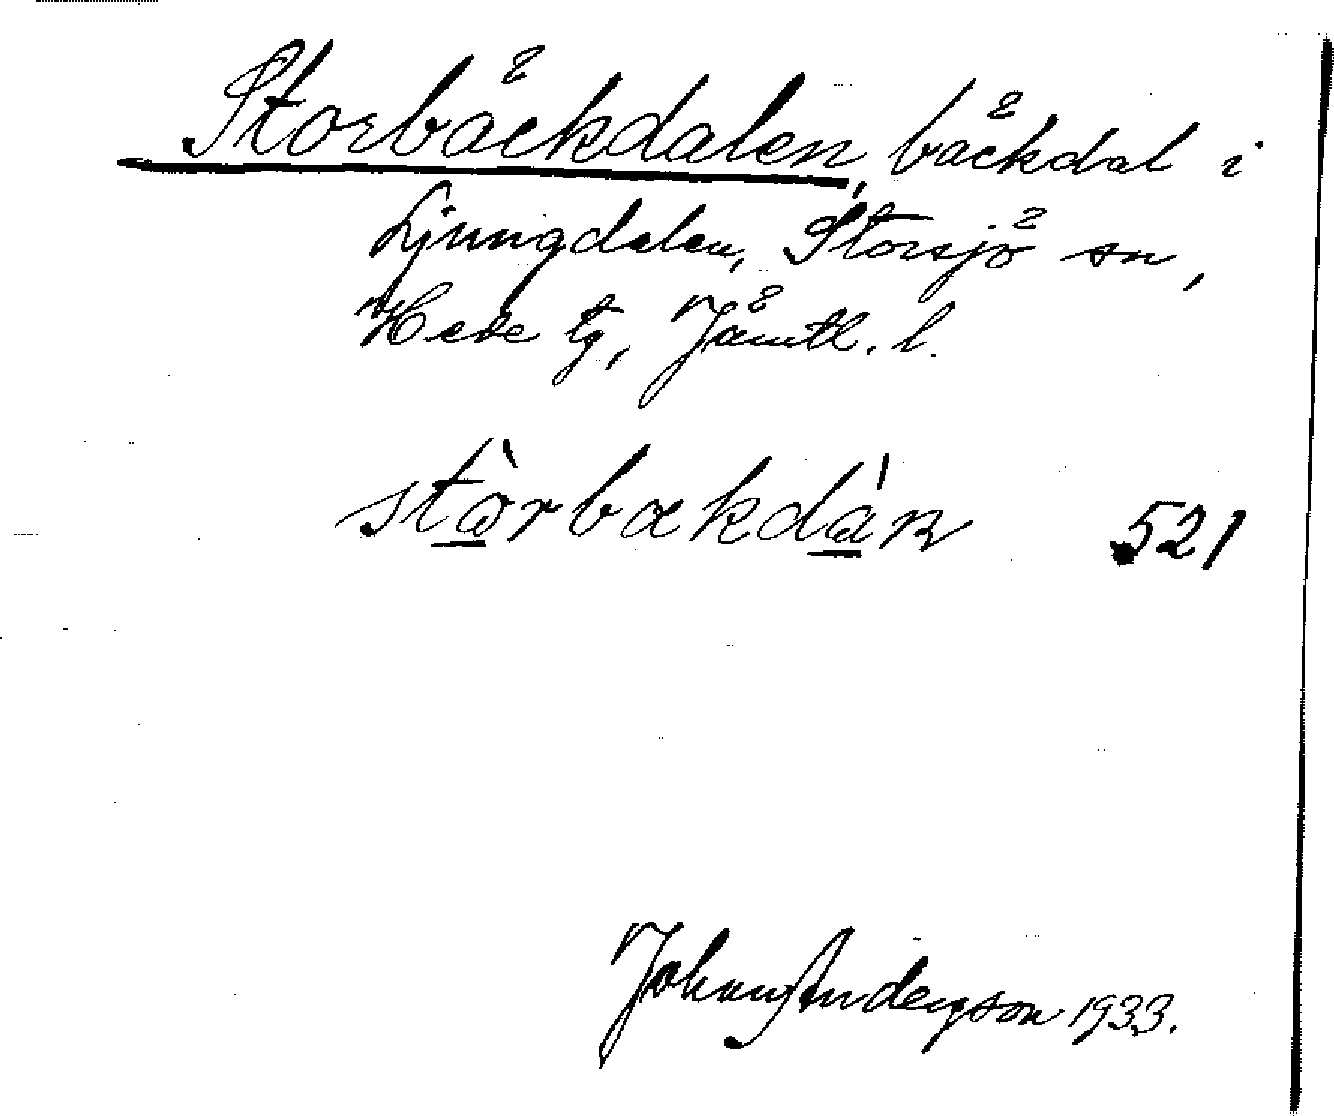 Storbäckdalen, bäckdal i
Ljungdalen, Storsjö sn,
Hede tg, Jämtl. l.
stòrbækdán 521
Johan Anderson 1933.